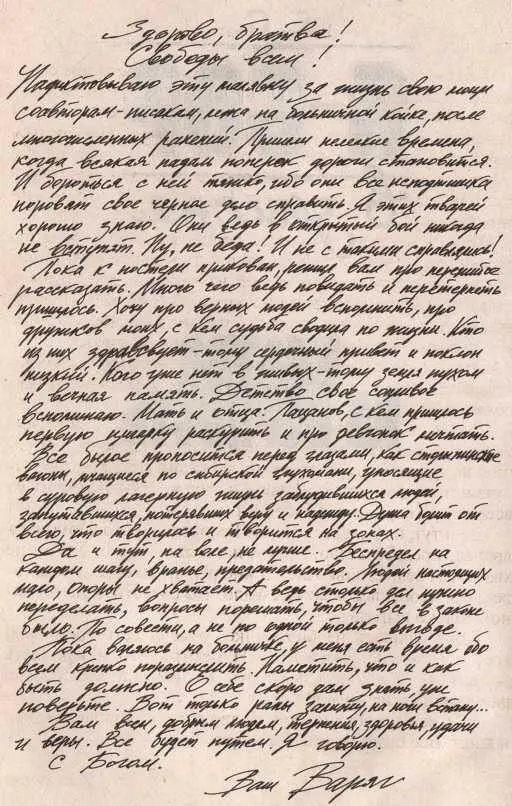 Здорово, братва!
Свободы всем!
Надиктовываю эту маляву за жизнь свою моим
соавторам-писакам, лежа на больничной койке, после
многочисленных ранений. Пришли нелегкие времена,
когда всякая падаль поперек дороги становится.
И бороться с ней тяжко, ибо они все исподтишка
норовят свое черное дело справить. Я этих тварей
хорошо знаю. Они ведь в открытый бой никогда
не вступят. Ну, не беда! И не с такими справлялись!
Пока к постели прикован, решил вам про пережитое
рассказать. Много чего ведь повидать и перетерпеть
пришлось. Хочу про верных людей вспомнить, про
дружков моих, с кем судьба сводила по жизни. Кто
из них здравсвует-тому сердечный привет и поклон
низкий. Кого уже нет в живых-тому земля пухом
и вечная память. Детство свое сопливое
вспоминаю. Мать и отца. Пацанов, с кем пришлось
первую цигарку раскурить и про девчонок мечтать.
Все былое проносится перед глазами, как столыпинские
вагоны, мчащиеся по сибирской глухомани, уносящие
в суровую лагерную жизнь заблудившихся людей,
запутавшихся, потерявших веру и надежду. Душа болит от
всего, что творилось и творится на зонах.
Да и тут, на воле, не лучше. Беспредел на
каждом шагу, вранье, предательство. Людей настоящих
мало, опоры не хватает. А ведь столько дел нужно
переделать, вопросы порешать, чтобы все в законе
было. По совести, а не по одной только выгоде.
Пока валяюсь на больничке, у меня есть время обо
всем крепко поразмыслить. Наметить, что и как
быть должно. О себе скоро дам знать, уж
поверьте. Вот только раны залечу, на ноги встану...
Вам всем, добрым людям, терпения, здоровья, удачи
и веры. Все будет путем. Я говорю.
С Богом.
Ваш Варяг